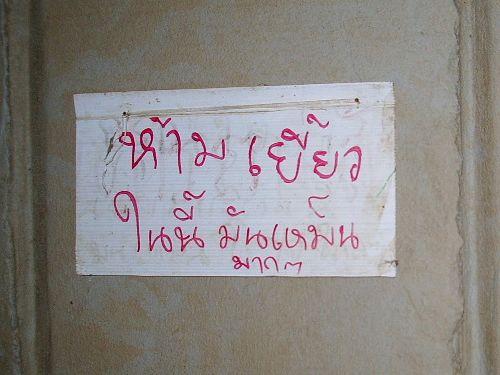 ห้าม เยี่ยว
ในนี้ มันเหม็น
มากๆ